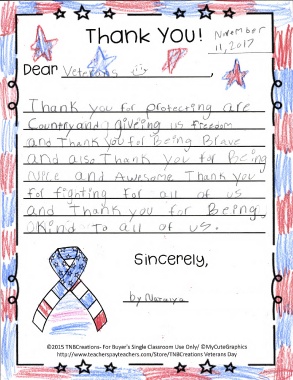 Thank You!
November
11, 2017
Dear Veterans
Thank you for protecting are
Country and giveing us freedom
and Thank you for being Brave
and also Thank you for Being
Nice and Awesome Thank you
for fighting for all of us
and Thank you for Being
kind to all of us.
Sincerely,
by Naraiya
©2015 TNBCreations- For Buyer's Single Classroom Use Only/ ©MyCuteGraphics
http://www.teacherspayteachers.com/Store/TNBCreations Veterans Day